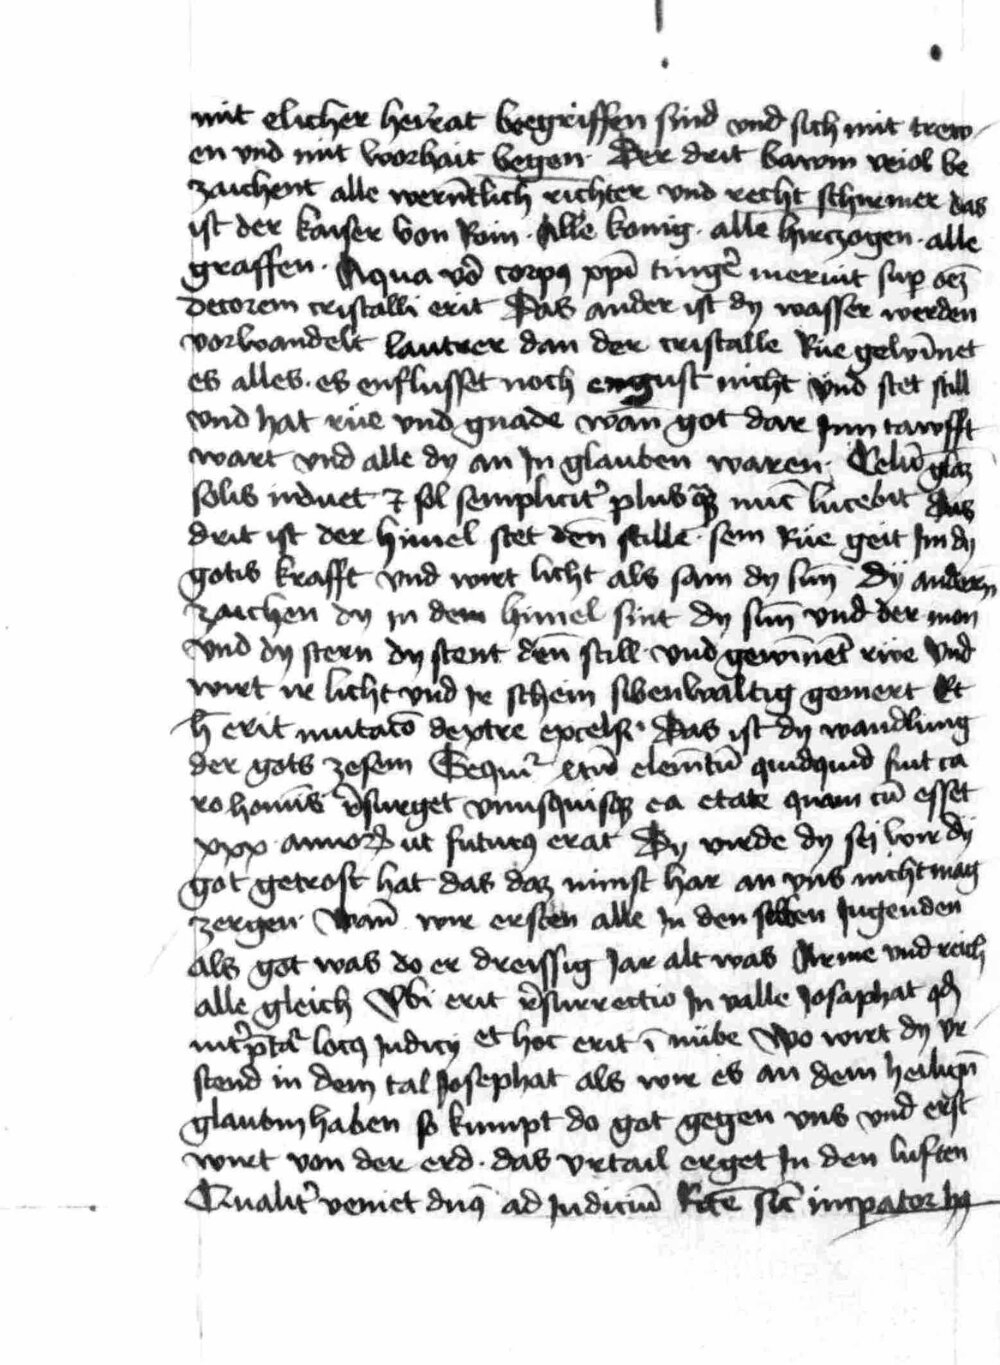 mit elicher heyrat begriffen sind vnd sich mit trew-
en vnd mit worhait begen. Der drit bawm veiol be
zaichent alle werntlich richter vnd recht schirmer das
ist der kaiser von Rom. Alle konig. alle herczogen. alle
graffen. Aqua vō corpꝯ xp̄i tingere meruit sup oēꝫ
decorem cristalli erit Das ander ist dy wasser werden
vorwandelt lautrer dan der cristalle Rüe gewīnet
es alles. es enflusset noch engust nicht vnd stet still
vnd hat rüe vnd gnade wan̄ got dar Inn tawfft
wart vnd alle dy an In glauben waren. Celū glāꝫ
solis induet ⁊ sol semplicit̾ plusqꝫ nūc lucebit Das
drit ist der himel stet den̄ stille. sem Rüe geit Im dy
gotis krafft vnd wirt licht als sam dy sun̄ Dy andern̄
zaichen dy in dem himel sint dy sun̄ vnd der mon
vnd dy stern dy stent den̄ still. vnd gewīnēt rwe vnd
wirt ir licht vnd Ir schein sibenwaltig gemert Et
h̄ erit mutacō dextre excelsi. Das ist dy wandlung
der gots zesem Sequit̾ elemētū quidquid fuit ca
ro homīs r̄surget vnusquisqꝫ ea etate quam cū esset
xxx annorꝝ ut futurꝯ erat Dy vrde dy sej wir dy
got getrost hat das daz minst har an vns nicht mag
zergen. Wan̄ wir ersten alle In den selben Jugenden
als got was do er dreissig Jar alt was Arme vnd reich
alle gleich Vbi erit r̄surrectio In valle Josaphat qd̄
int̾p̄tat̾ locꝯ Judicij et hoc erit ī nube Wo wirt dy vr-
stend in dem tal Josephat als wir es an dem heilign̄
glaubm haben so kumpt do got gegen vns vnd erst
wirt von der erd. das vrtail erget In den luften
Qualit̾ veniet dnꝯ ad Judiciū Rn̄e sic imperator